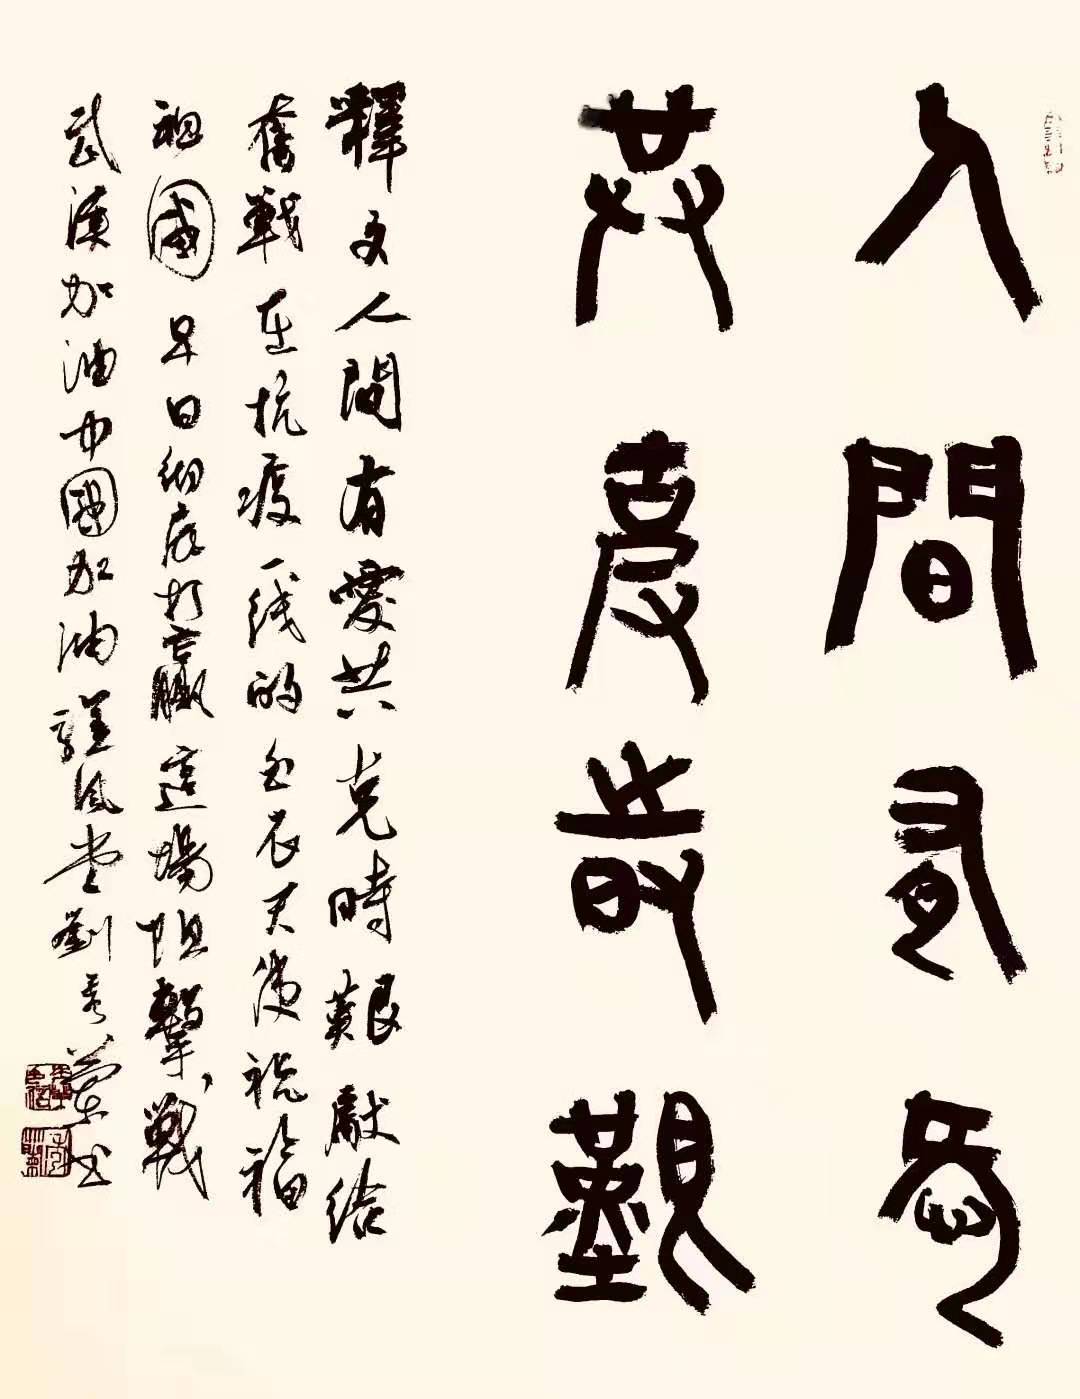 人間有愛
共克時艱
釋文人間有愛共克時艱獻給
奮戰在抗疫一线的白衣天使祝福
祖國早日彻底打赢這場阻擊戰
武漢加油中國加油 風堂劉 书